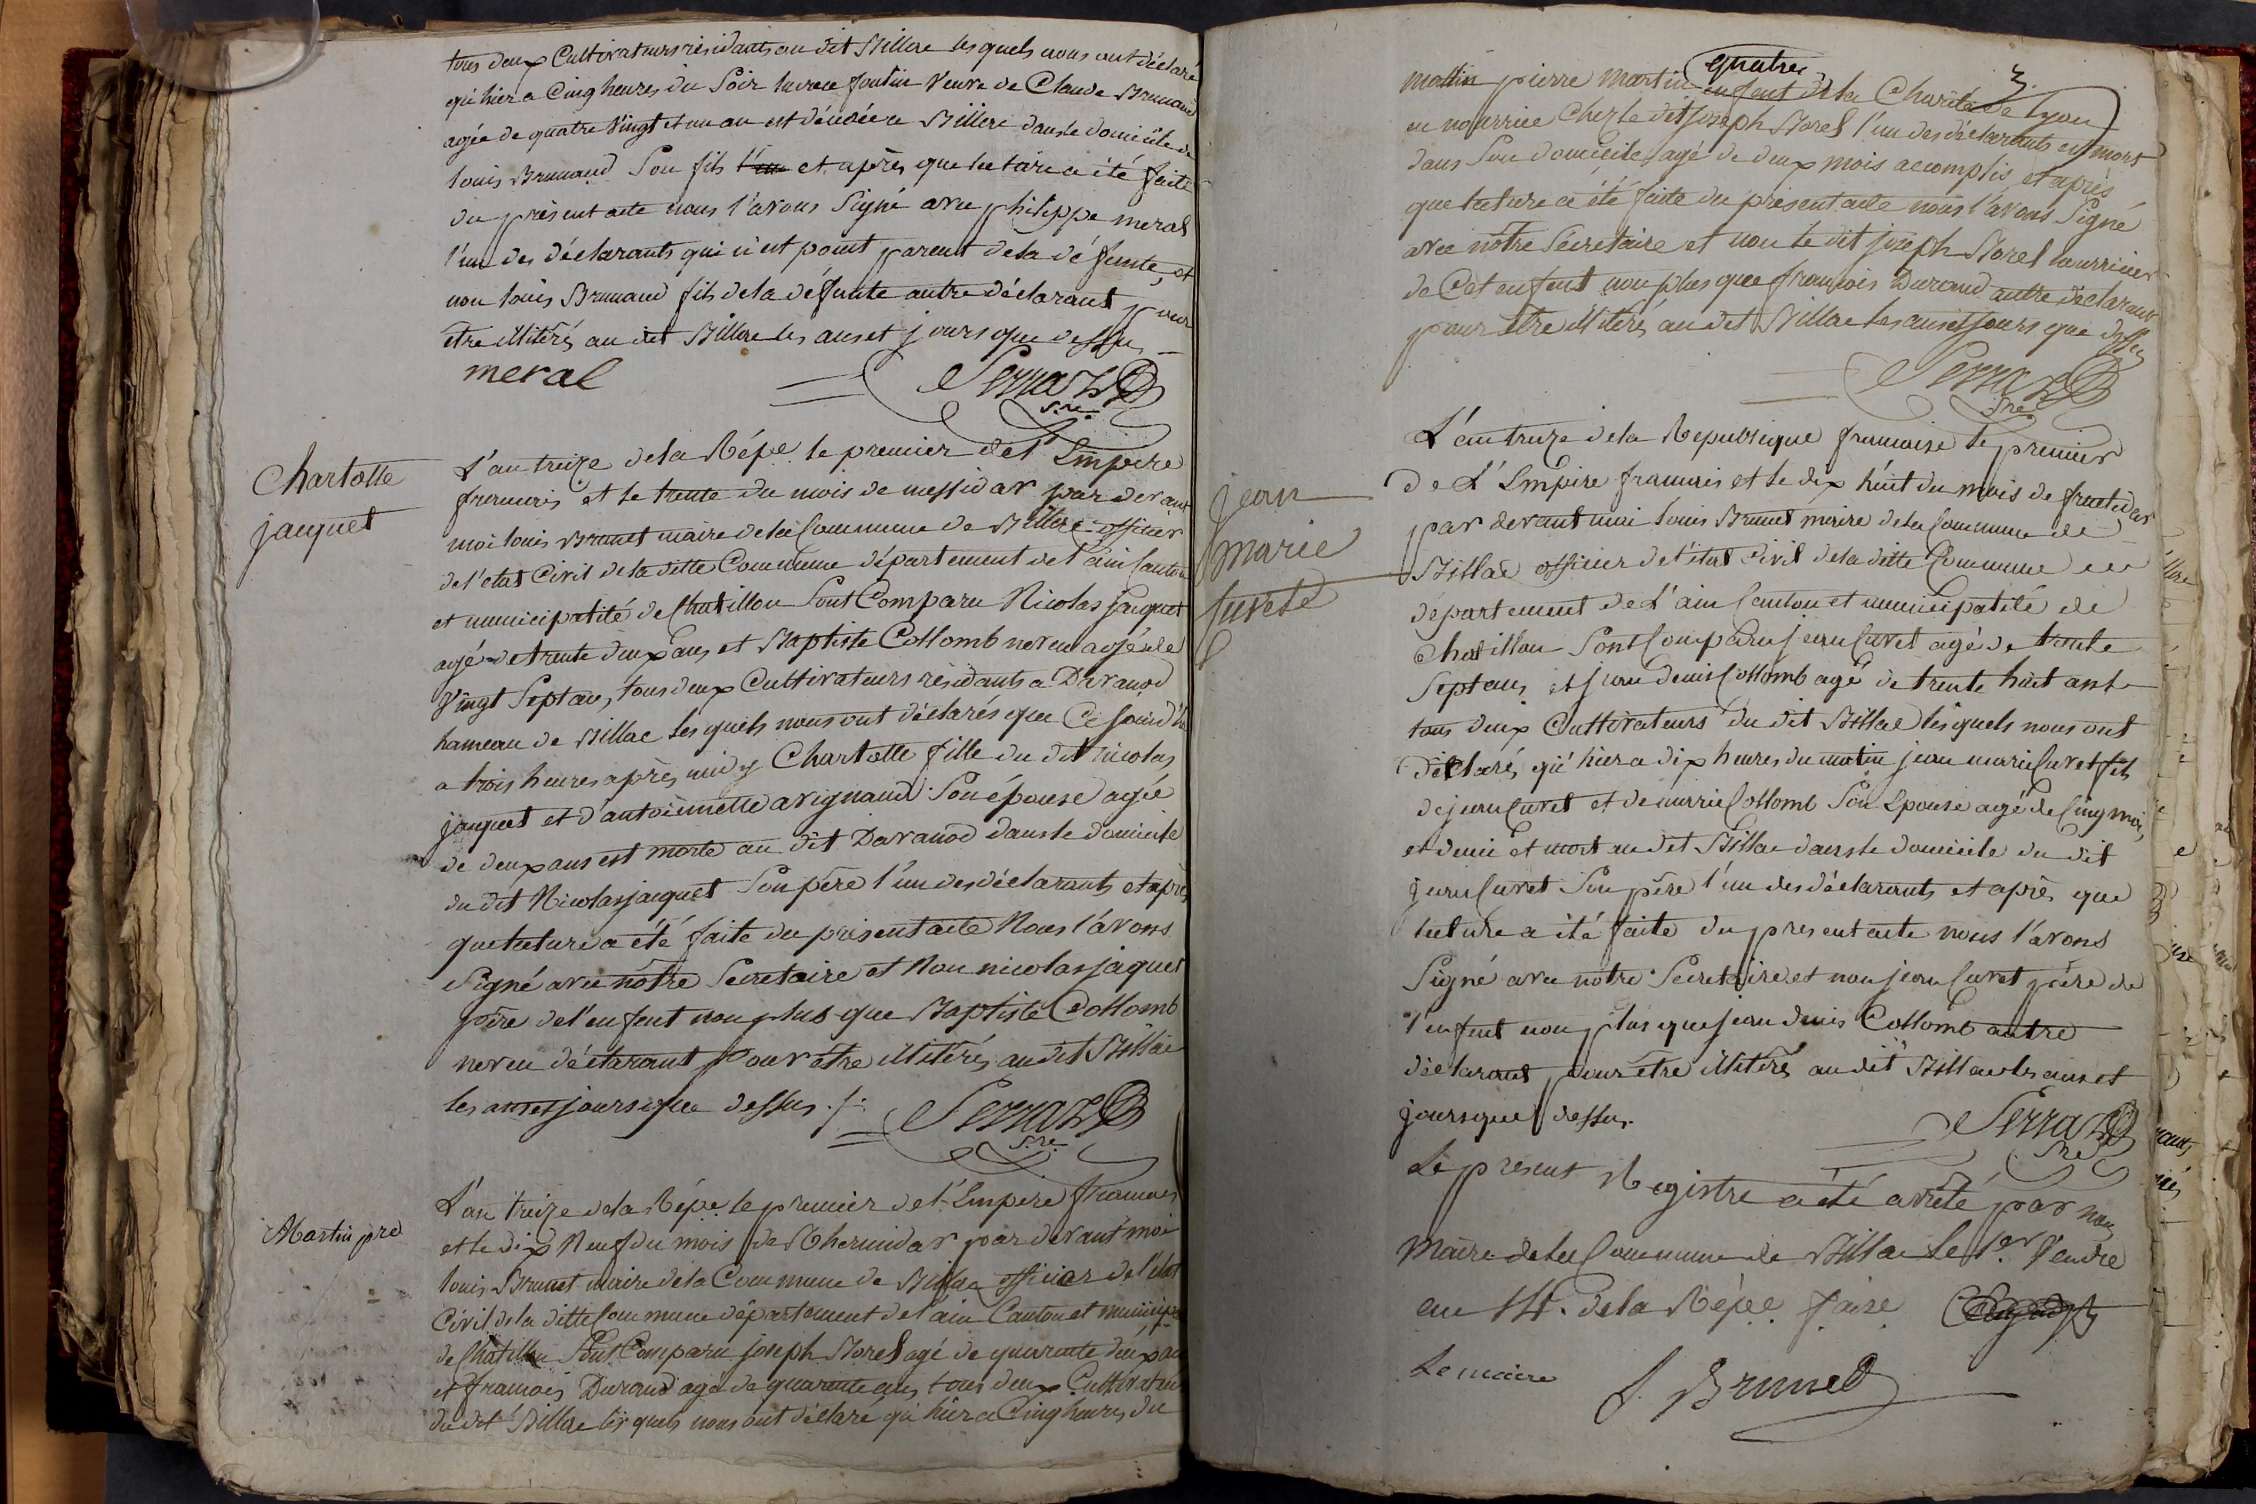 tous deux Cultivateurs residants au dit Billiae lesquels nous ont déclaré
qu'hier a Cinq heures du Soir fontin Veuve de Claude Brunaud
agée de quatre Vingt et un an est décédée a Billiae dans le domicile de
louis Brunaud Son fils et après que lecture a été faite
du présent acte nous l'avons Signé avec philippe meral
l'un des déclarants qui n'est point parent de la défunte, et
non louis Brunaud fils de la défunte autre déclarant pour
être illitérés au dit Billiae les an et jours que dessus
meral Serrand
S.re
Charlotte
jacquet
L'an treize de la Répe. le premier de l'Empire
francais et le trente du mois de messidor par devant
moi louis Brunet maire de la Commune de Billiae officier
de l'etat Civil de la ditte Commune département de l'ain Canton
et municipalité de Chatillon Sont Comparu Nicolas jacquet
agé de trente deux ans, et Baptiste Collomb neveu agé de
Vingt Sept ans, tous deux Cultivateurs résidants a Davanod
hameau de Billiae lesquels nous ont déclarés que Ce jourd'hui
a trois heures après midy Charlotte fille du dit nicolas
jacquet et d'antoinette avignaud Son épouse agée
de deux ans est morte au dit Davanod dans le domicile
du dit Nicolas jacquet Son père l'un des déclarants et après
que lecture a été faite du présent acte Nous l'avons
Signé avec notre Secretaire et Non nicolas jaquet
père de l'enfent non plus que Baptiste Collomb
neveu déclarant Pour etre illitérés au dit Billiae
les an et jours que dessus ./. Serrand
S.re
Martin pre
L'an treize de la Répe. le premier de l'Empire francais
et le dix Neuf du mois de Thermidor par devant moi
louis Brunet maire de la Commune de Billiae officier de l'etat
Civil de la ditte Commune département de l'ain Canton et municipté
de Chatillon Sont Comparu joseph Borel agé de quarante deux ans
et francois Durand agé de quarante ans, tous deux Cultivateurs
du dit Billiae lesquels nous ont déclaré qu'hier a Cinq heures du
quatre 3.
matin pierre martin enfent de la Charité de Lyon
en nourrice Chez le dit joseph Borel l'un des déclarants est mort
dans Son domicile, agé de deux mois accomplis, et après
que lecture a été faite du présent acte nous l'avons Signé
avec nôtre Sécretaire et non le dit joseph Borel nourricier
de Cet enfent non plus que francois Durand autre déclarant
pour etre illitérés au dit Billiae les an et jours que dessus
Serrand
S.re
jean
marie
Curet
L'an treize de la Republique francaise le premier
de L'Empire francais et le dix huit du mois de fructidor
par devant moi louis Brunet maire de la Commune de
Billiae officier de l'état Civil de la ditte Commune
département de L'ain Canton et municipalité de
Chatillon Sont Comparu jean Curet agé de trente
Sept ans, et jean denis Collomb agé de trente huit ans
tous deux Cultivateurs du dit Billiae lesquels nous ont
déclarés, qu'hier a dix heures du matin jean marie Curet fils
de jean Curet et de marie Collomb Son Epouse agé de Cinq mois,
et demie et mort au dit Billiae dans le domicile du dit
jean Curet Son père l'un des déclarants et après que
lecture a été faite du present acte nous l'avons
Signé avec notre Secretaire et non jean Curet père de
l'enfent non plus que jean denis Collomb autre
déclarant pour être illitérés au dit Billiae les an et
jours que dessus. Serrand
S.re
Le present Registre a été arrété par nous
Maire de la Commune de Billiae Le 1er. Vendre
an 14. de la Répee. faise.
Le maire L. Brunet